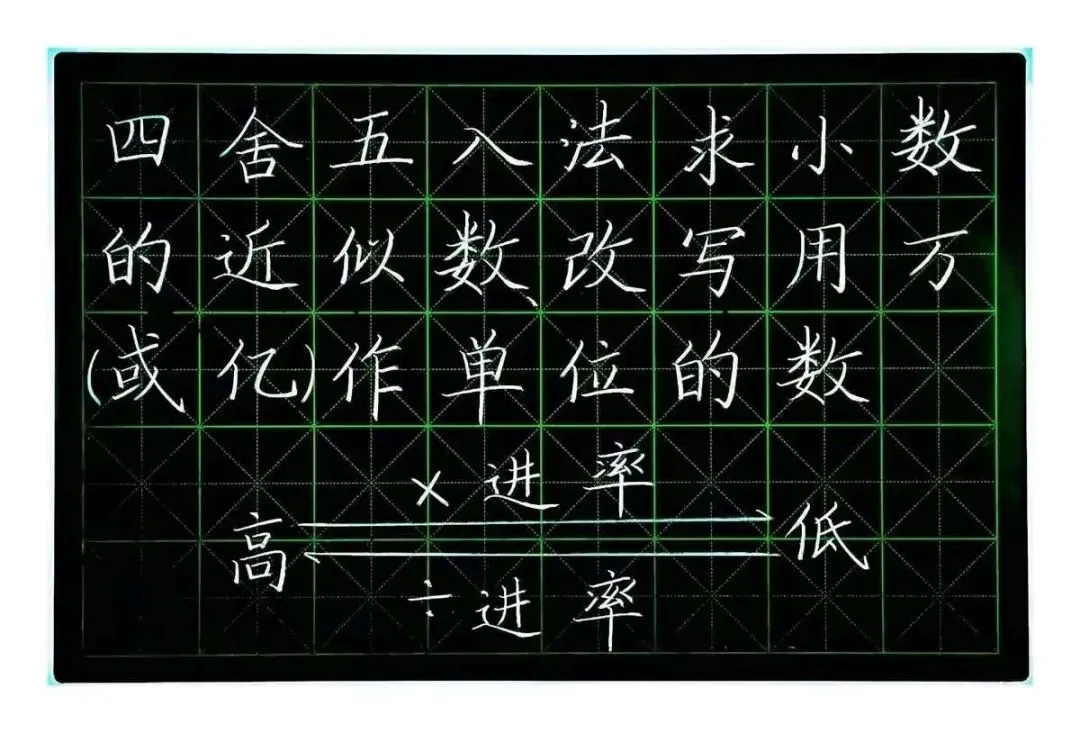 四舍五入法求小数
的近似数、改写用万
(或亿)作单位的数
×进率
高 低
÷进率